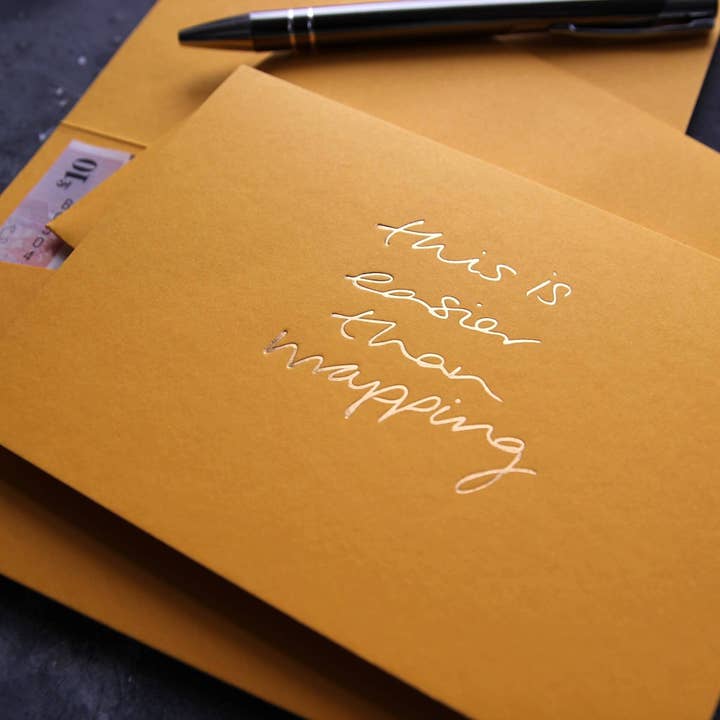 £10
this is
easier
than
wrapping